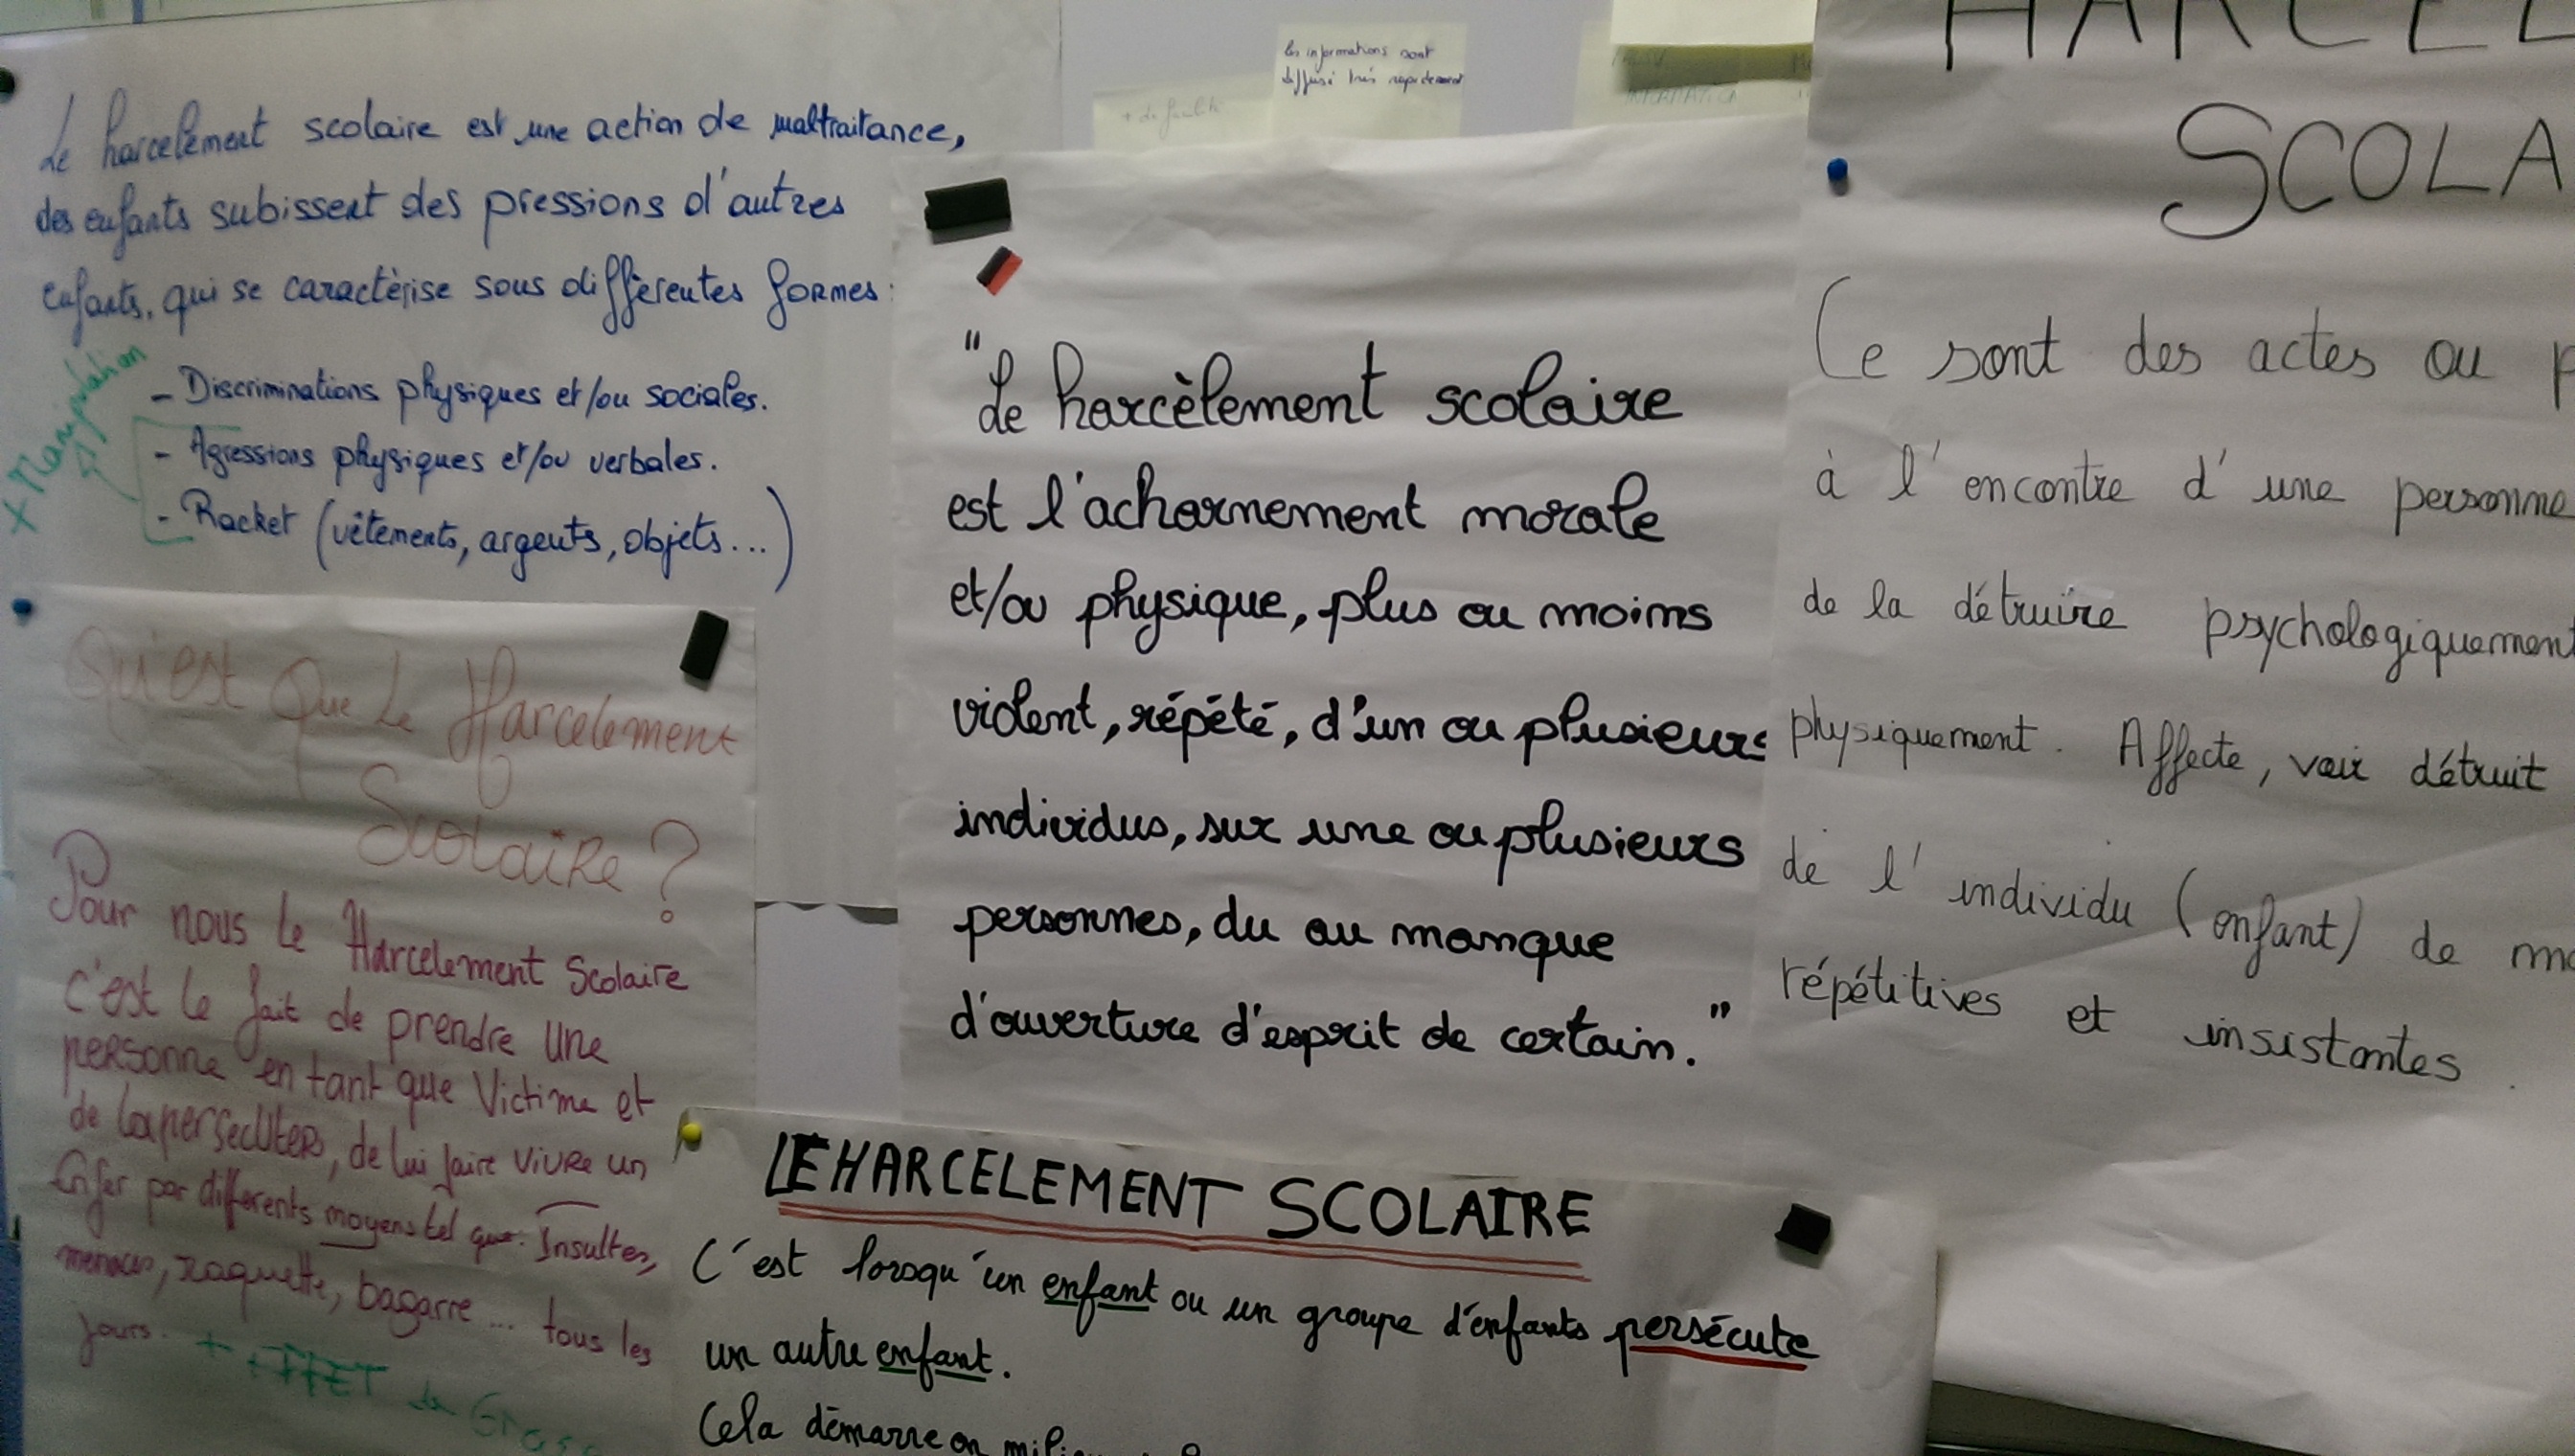 Le harcelement scolaire est une action de maltraitance,
des enfants subissent des pressions d'autres
enfants, qui se caractèrise sous diffèrentes formes:
- Discriminations physiques et/ou sociales.
- Agressions physiques et/ou verbales.
- Racket (vêtements, argents, objets...)
+ Manipulation
les informations sont
diffusé très rapidement
"Le harcèlement scolaire
est l'acharnement morale
et/ou physique, plus ou moins
violent, répété, d'un ou plusieurs
individus, sur une ou plusieurs
personnes, du au manque
d'ouverture d'esprit de certain."
HARCEL
SCOLA
Ce sont des actes ou p
à l'encontre d'une personne
de la détruire psychologiquement
physiquement. Affecte, voir détruit
de l'individu (enfant) de ma
répétitives et insistantes.
Qu'est Que Le Harcelement
Scolaire?
Pour nous le Harcelement Scolaire
c'est le fait de prendre une
personne en tant que Victime et
de la persecuters, de lui faire vivre un
Enfer par differents moyens tel que: Insultes,
menaces, raquette, bagarre... tous les
jours. + EFFET de Gro
LE HARCELEMENT SCOLAIRE
C'est lorsqu'un enfant ou un groupe d'enfants persécute
un autre enfant.
Cela démarre en